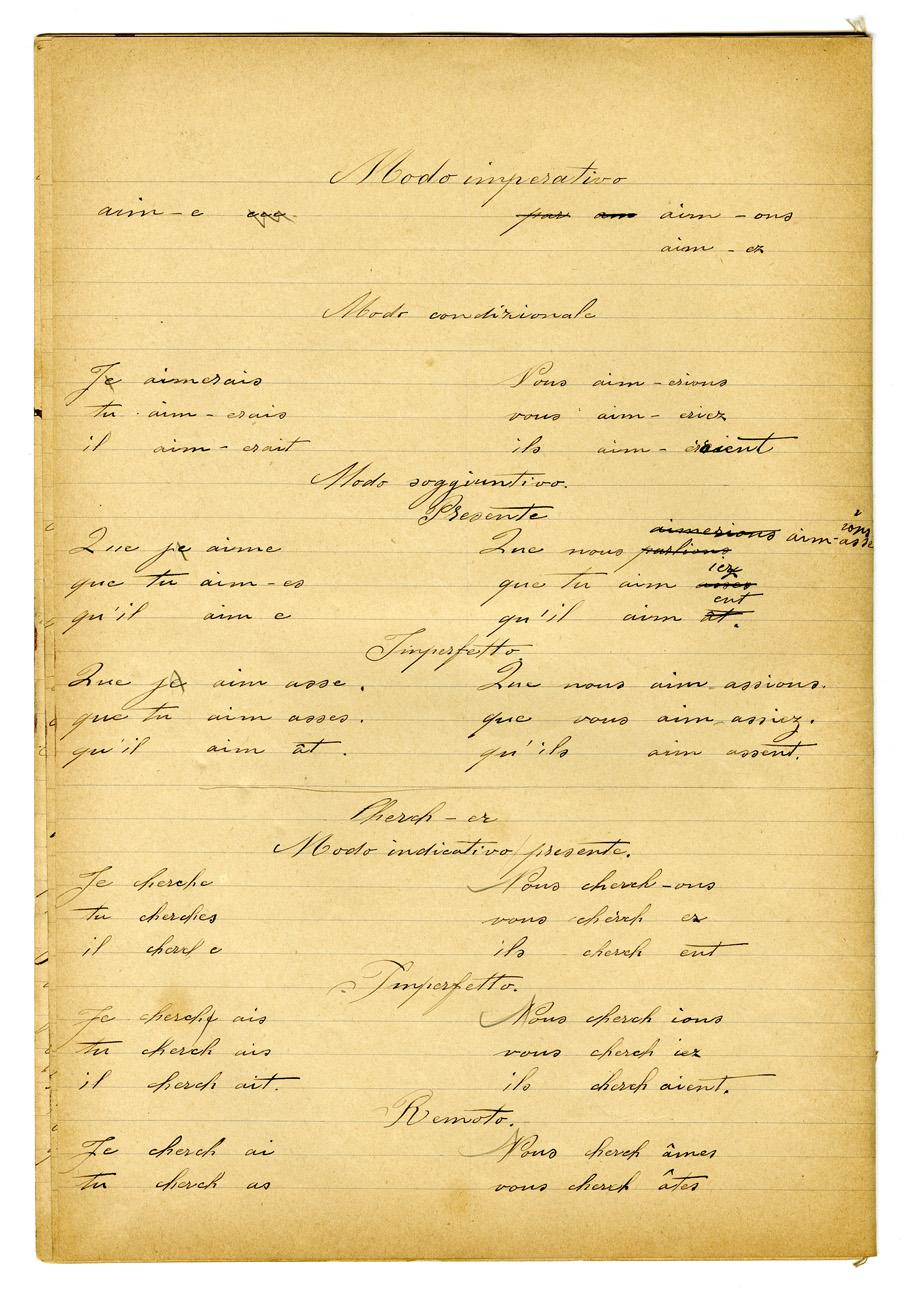 Modo imperativo
aim - e aim - ons
aim - ez
Modo condizionale
Je aimerais Nous aim - erions
tu aim - erais vous aim - eriez
il aim - erait ils aim - eraient
Modo soggiuntivo.
Presente
aimerions aim-
Que je aime Que nous parlions
iez
que tu aim - es que tu aim asses
ent
qu'il aim e qu'il aim ât.
Imperfetto
Que je aim asse. Que nous aim assions.
que tu aim asses. que vous aim assiez.
qu'il aim ât. qu'ils aim assent.
Cherch - er
Modo indicativo presente.
Je cherche Nous cherch - ons
tu cherches vous cherch ez
il cherch e ils cherch ent
Imperfetto.
Je cherch ais Nous cherch ions
tu cherch ais vous cherch iez
il cherch ait. ils cherch aient.
Remoto.
Je cherch ai Nous cherch âmes
tu cherch as vous cherch âtes